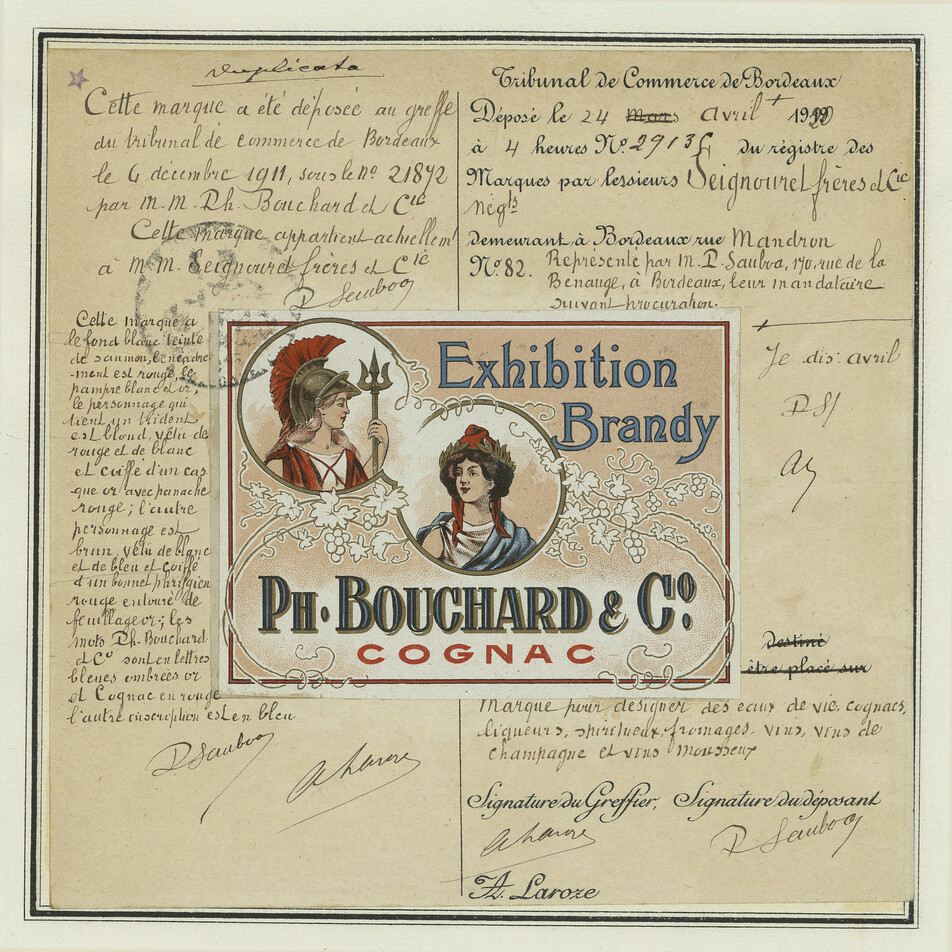 Duplicata
Cette marque a été déposée au greffe
du tribunal de commerce de Bordeaux
le 6 décembre 1911, sous le no 21872
par M.M. Ph. Bouchard et Cie
Cette marque appartient actuellemt
à M.M. Seignouret frères et Cie
P Sauboa
Cette marque a
le fond blanc teinté
de saumon, l'encadre
-ment est rouge, le
pampre blanc et or,
le personnage qui
tient un trident
est blond, vêtu de
rouge et de blanc
et coiffé d'un cas
que or avec panache
rouge; l'autre
personnage est
brun, vêtu de blanc
et de bleu et coiffé
d'un bonnet phrygien
rouge entouré de
feuillage or; les
mots Ph. Bouchard
et Co sont en lettres
bleues ombrées or
et Cognac en rouge
l'autre inscription est en bleu
P Sauboa
A Laroze
Tribunal de Commerce de Bordeaux
Déposé le 24 mars avril 1920
à 4 heures No. 29136 du régistre des
Marques par lessieurs Seignouret frères et Cie
négts
demeurant à Bordeaux rue Mandron
No. 82. Représenté par M. P. Sauboa, 170, rue de la
Benauge, à Bordeaux, leur mandataire
suivant procuration.
Je dis: avril
PS
Exhibition
Brandy
PH. BOUCHARD & Co.
COGNAC
destiné
être placé sur
Marque pour désigner des eaux de vie, cognacs,
liqueurs, spiritueux, fromages, vins, vins de
champagne et vins mousseux
Signature du Greffier, Signature du déposant
A Laroze P Sauboa
A. Laroze